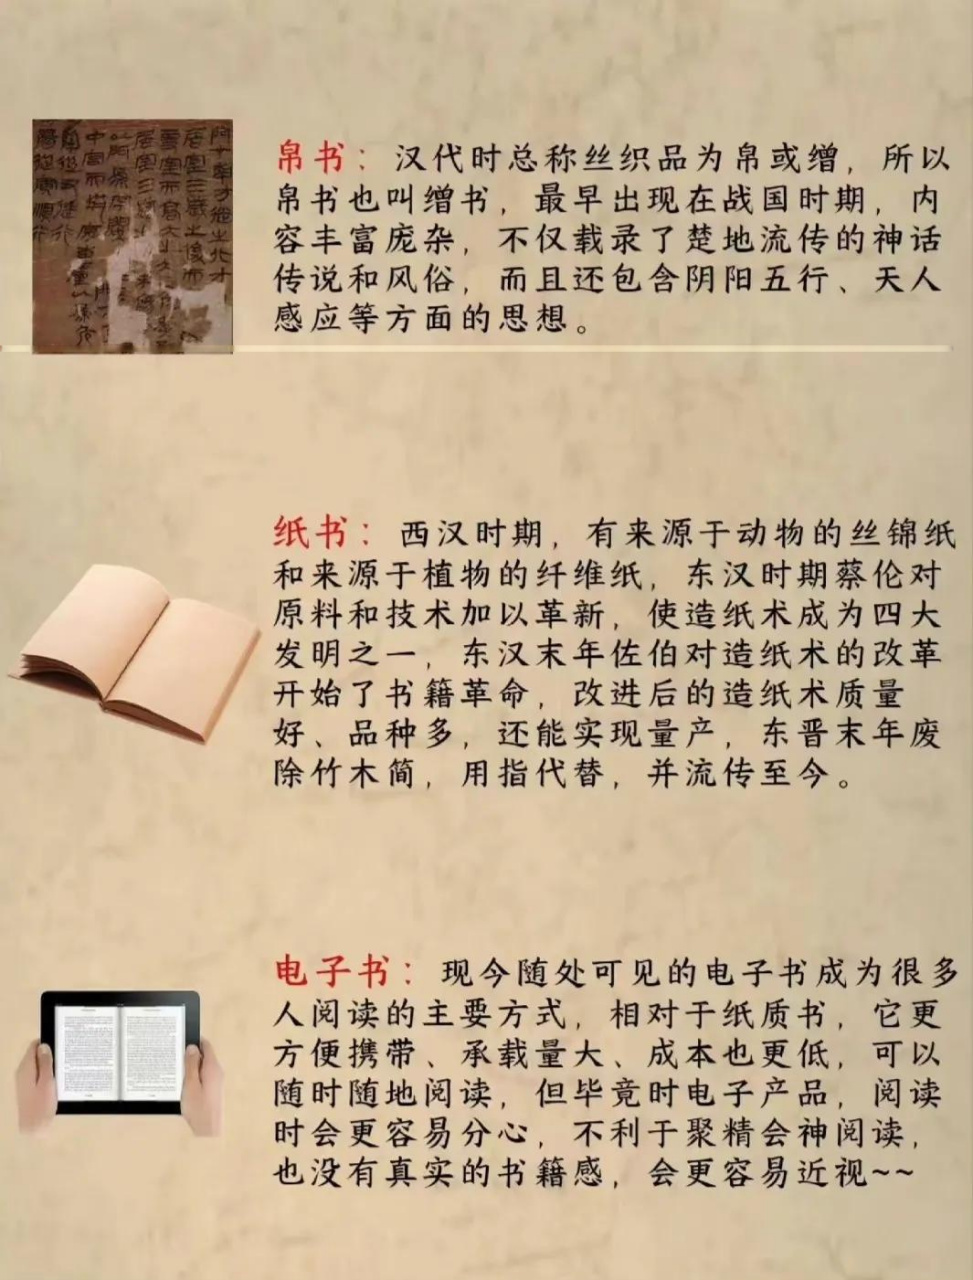 帛书：汉代时总称丝织品为帛或缯，所以
帛书也叫缯书，最早出现在战国时期，内
容丰富庞杂，不仅载录了楚地流传的神话
传说和风俗，而且还包含阴阳五行、天人
感应等方面的思想。
纸书：西汉时期，有来源于动物的丝锦纸
和来源于植物的纤维纸，东汉时期蔡伦对
原料和技术加以革新，使造纸术成为四大
发明之一，东汉末年佐伯对造纸术的改革
开始了书籍革命，改进后的造纸术质量
好、品种多，还能实现量产，东晋末年废
除竹木简，用指代替，并流传至今。
电子书：现今随处可见的电子书成为很多
人阅读的主要方式，相对于纸质书，它更
方便携带、承载量大、成本也更低，可以
随时随地阅读，但毕竟时电子产品，阅读
时会更容易分心，不利于聚精会神阅读，
也没有真实的书籍感，会更容易近视~~